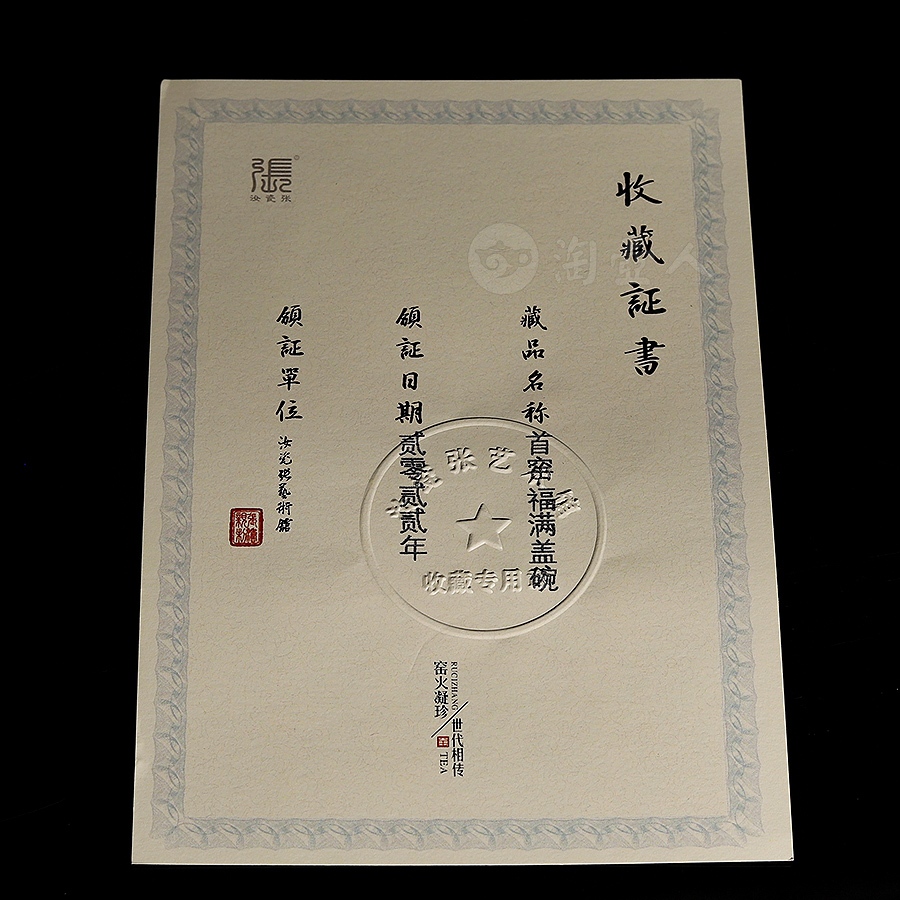 收藏証書
藏品名称首窑福满盖碗
領証日期贰零贰贰年
領証單位汝瓷張藝術館
張
汝瓷张
淘壶人
张艺
收藏专用
RUCIZHANG
世代相传
窑火凝珍
TEA